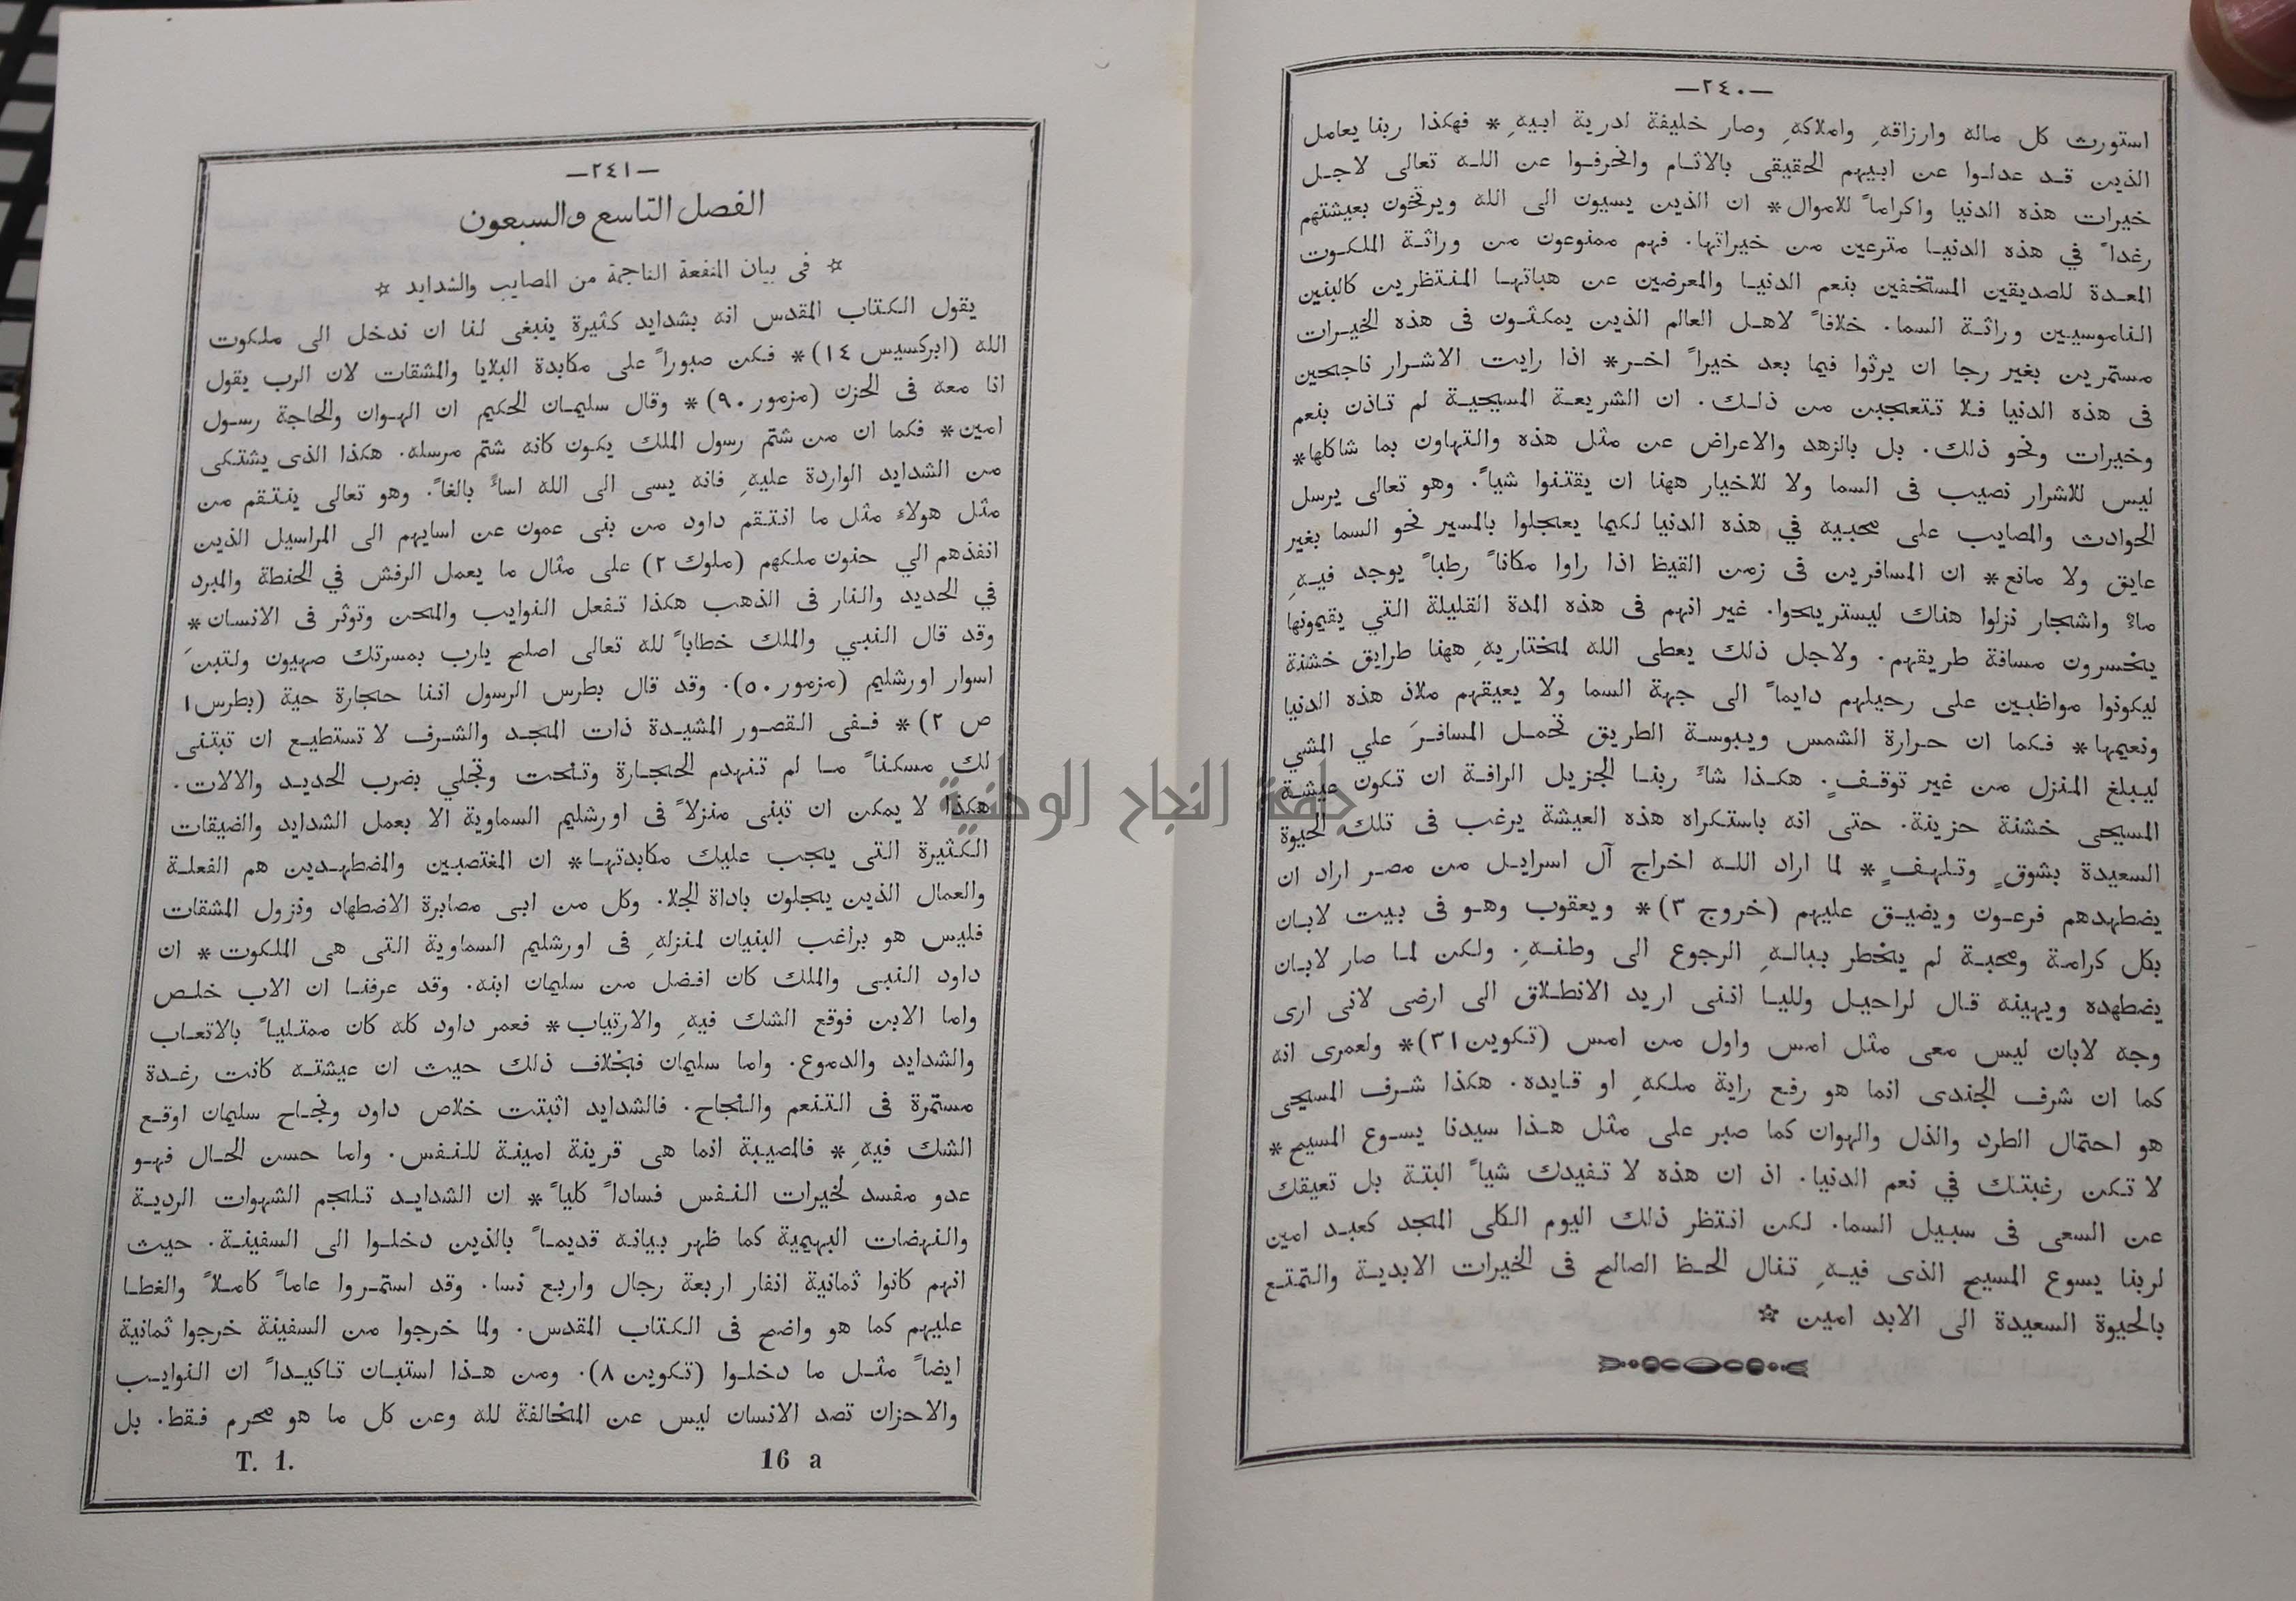 —٢٤٠—
استورث كل ماله وارزاقهِ واملاكهِ وصار خليفة لدرية ابيهِ * فهكذا ربنا يعامل
الذين قد عدلوا عن ابيهم الحقيقى بالاثام وانحرفوا عن الله تعالى لاجل
خيرات هذه الدنيا واكراماً للاموال * ان الذين يسيون الى الله ويرتخون بعيشتهم
رغداً في هذه الدنيا مترعين من خيراتها. فهم ممنوعون من وراثة الملكوت
المعدة للصديقين المستخفين بنعم الدنيا والمعرضين عن هباتها المنتظرين كالبنين
الناموسيين وراثة السما. خلافاً لاهل العالم الذين يمكثون فى هذه الخيرات
مستمرين بغير رجا ان يرثوا فيما بعد خيراً اخر * اذا رايت الاشرار ناجحين
فى هذه الدنيا فلا تتعجبن من ذلك. ان الشريعة المسيحية لم تاذن بنعم
وخيرات ونحو ذلك. بل بالزهد والاعراض عن مثل هذه والتهاون بما شاكلها *
ليس للاشرار نصيب فى السما ولا للاخيار ههنا ان يقتنوا شياً. وهو تعالى يرسل
الحوادث والمصايب على محبيه في هذه الدنيا لكيما يعجلوا بالمسير نحو السما بغير
عايق ولا مانع * ان المسافرين فى زمن القيظ اذا راوا مكاناً رطباً يوجد فيهِ
ماءً واشجار نزلوا هناك ليستريحوا. غير انهم فى هذه المدة القليلة التي يقيمونها
يخسرون مسافة طريقهم. ولاجل ذلك يعطى الله لمختاريهِ ههنا طرايق خشنة
ليكونوا مواظبين على رحيلهم دايماً الى جهة السما ولا يعيقهم ملاذ هذه الدنيا
ونعيمها * فكما ان حرارة الشمس ويبوسة الطريق تحمل المسافرَ علي المشي
ليبلغ المنزل من غير توقفٍ. هكذا شاءَ ربنا الجزيل الرافة ان تكون عيشة
المسيحى خشنة حزينة. حتى انه باستكراه هذه العيشة يرغب فى تلك الحيوة
السعيدة بشوقٍ وتلهفٍ * لما اراد الله اخراج آل اسرايل من مصر اراد ان
يضطهدهم فرعون ويضيق عليهم (خروج ٣) * ويعقوب وهو فى بيت لابان
بكل كرامة ومحبة لم يخطر ببالهِ الرجوع الى وطنهِ. ولكن لما صار لابان
يضطهده ويهينه قال لراحيل ولليا اننى اريد الانطلاق الى ارضى لانى ارى
وجه لابان ليس معى مثل امس واول من امس (تكوين ٣١) * ولعمرى انه
كما ان شرف الجندى انما هو رفع راية ملكهِ او قايده. هكذا شرف المسيحى
هو احتمال الطرد والذل والهوان كما صبر على مثل هذا سيدنا يسوع المسيح *
لا تكن رغبتك في نعم الدنيا. اذ ان هذه لا تفيدك شياً البتة بل تعيقك
عن السعى فى سبيل السما. لكن انتظر ذلك اليوم الكلى المجد كعبد امين
لربنا يسوع المسيح الذى فيهِ تنال الحظ الصالح فى الخيرات الابدية والتمتع
بالحيوة السعيدة الى الابد امين ☆
—٢٤١—
الفصل التاسع والسبعون
☆ فى بيان المنفعة الناجمة من المصايب والشدايد ☆
يقول الكتاب المقدس انه بشدايد كثيرة ينبغى لنا ان ندخل الى ملكوت
الله (ابركسيس ١٤) * فكن صبوراً على مكابدة البلايا والمشقات لان الرب يقول
انا معه فى الحزن (مزمور ٩٠) * وقال سليمان الحكيم ان الهوان والحاجة رسول
امين * فكما ان من شتم رسول الملك يكون كانه شتم مرسله. هكذا الذى يشتكى
من الشدايد الواردة عليهِ فانه يسى الى الله اساءً بالغاً. وهو تعالى ينتقم من
مثل هولاءِ مثل ما انتقم داود من بنى عمون عن اسايهم الى المراسيل الذين
انفذهم الي حنون ملكهم (ملوك ٢) على مثال ما يعمل الرفش في الحنطة والمبرد
في الحديد والنار فى الذهب هكذا تفعل النوايب والمحن وتوثر فى الانسان *
وقد قال النبي والملك خطاباً لله تعالى اصلح يارب بمسرتك صهيون ولتبنَ
اسوار اورشليم (مزمور ٥٠). وقد قال بطرس الرسول اننا حجارة حية (بطرس ١
ص ٢) * ففى القصور المشيدة ذات المجد والشرف لا تستطيع ان تبتنى
لك مسكناً ما لم تنهدم الحجارة وتنحت وتجلي بضرب الحديد والالات.
هكذا لا يمكن ان تبنى منزلاً فى اورشليم السماوية الا بعمل الشدايد والضيقات
الكثيرة التى يجب عليك مكابدتها * ان المغتصبين والمضطهدين هم الفعلة
والعمال الذين يجلون باداة الجلا. وكل من ابى مصابرة الاضطهاد ونزول المشقات
فليس هو براغب البنيان لمنزلهِ فى اورشليم السماوية التى هى الملكوت * ان
داود النبى والملك كان افضل من سليمان ابنه. وقد عرفنا ان الاب خلص
واما الابن فوقع الشك فيهِ والارتياب * فعمر داود كله كان ممتلياً بالاتعاب
والشدايد والدموع. واما سليمان فبخلاف ذلك حيث ان عيشته كانت رغدة
مستمرة فى التنعم والنجاح. فالشدايد اثبتت خلاص داود ونجاح سليمان اوقع
الشك فيهِ * فالمصيبة انما هى قرينة امينة للنفس. واما حسن الحال فهو
عدو مفسد لخيرات النفس فساداً كلياً * ان الشدايد تلجم الشهوات الردية
والنهضات البهيمية كما ظهر بيانه قديماً بالذين دخلوا الى السفينة. حيث
انهم كانوا ثمانية انفار اربعة رجال واربع نسا. وقد استمروا عاماً كاملاً والغطا
عليهم كما هو واضح فى الكتاب المقدس. ولما خرجوا من السفينة خرجوا ثمانية
ايضاً مثل ما دخلوا (تكوين ٨). ومن هذا استبان تاكيداً ان النوايب
والاحزان تصد الانسان ليس عن المخالفة لله وعن كل ما هو محرم فقط. بل
T. 1. 16 a
جامعة النجاح الوطنية